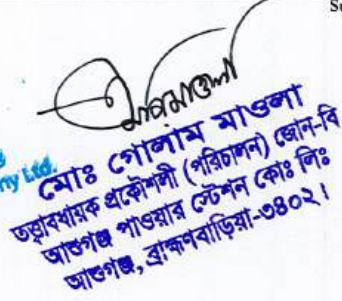 Su
ny Ltd.
মোঃ গোলাম মাওলা
তত্ত্বাবধায়ক প্রকৌশলী (পরিচালন) জোন-বি
আশুগঞ্জ পাওয়ার স্টেশন কোঃ লিঃ
আশুগঞ্জ, ব্রাহ্মণবাড়িয়া-৩৪০২।